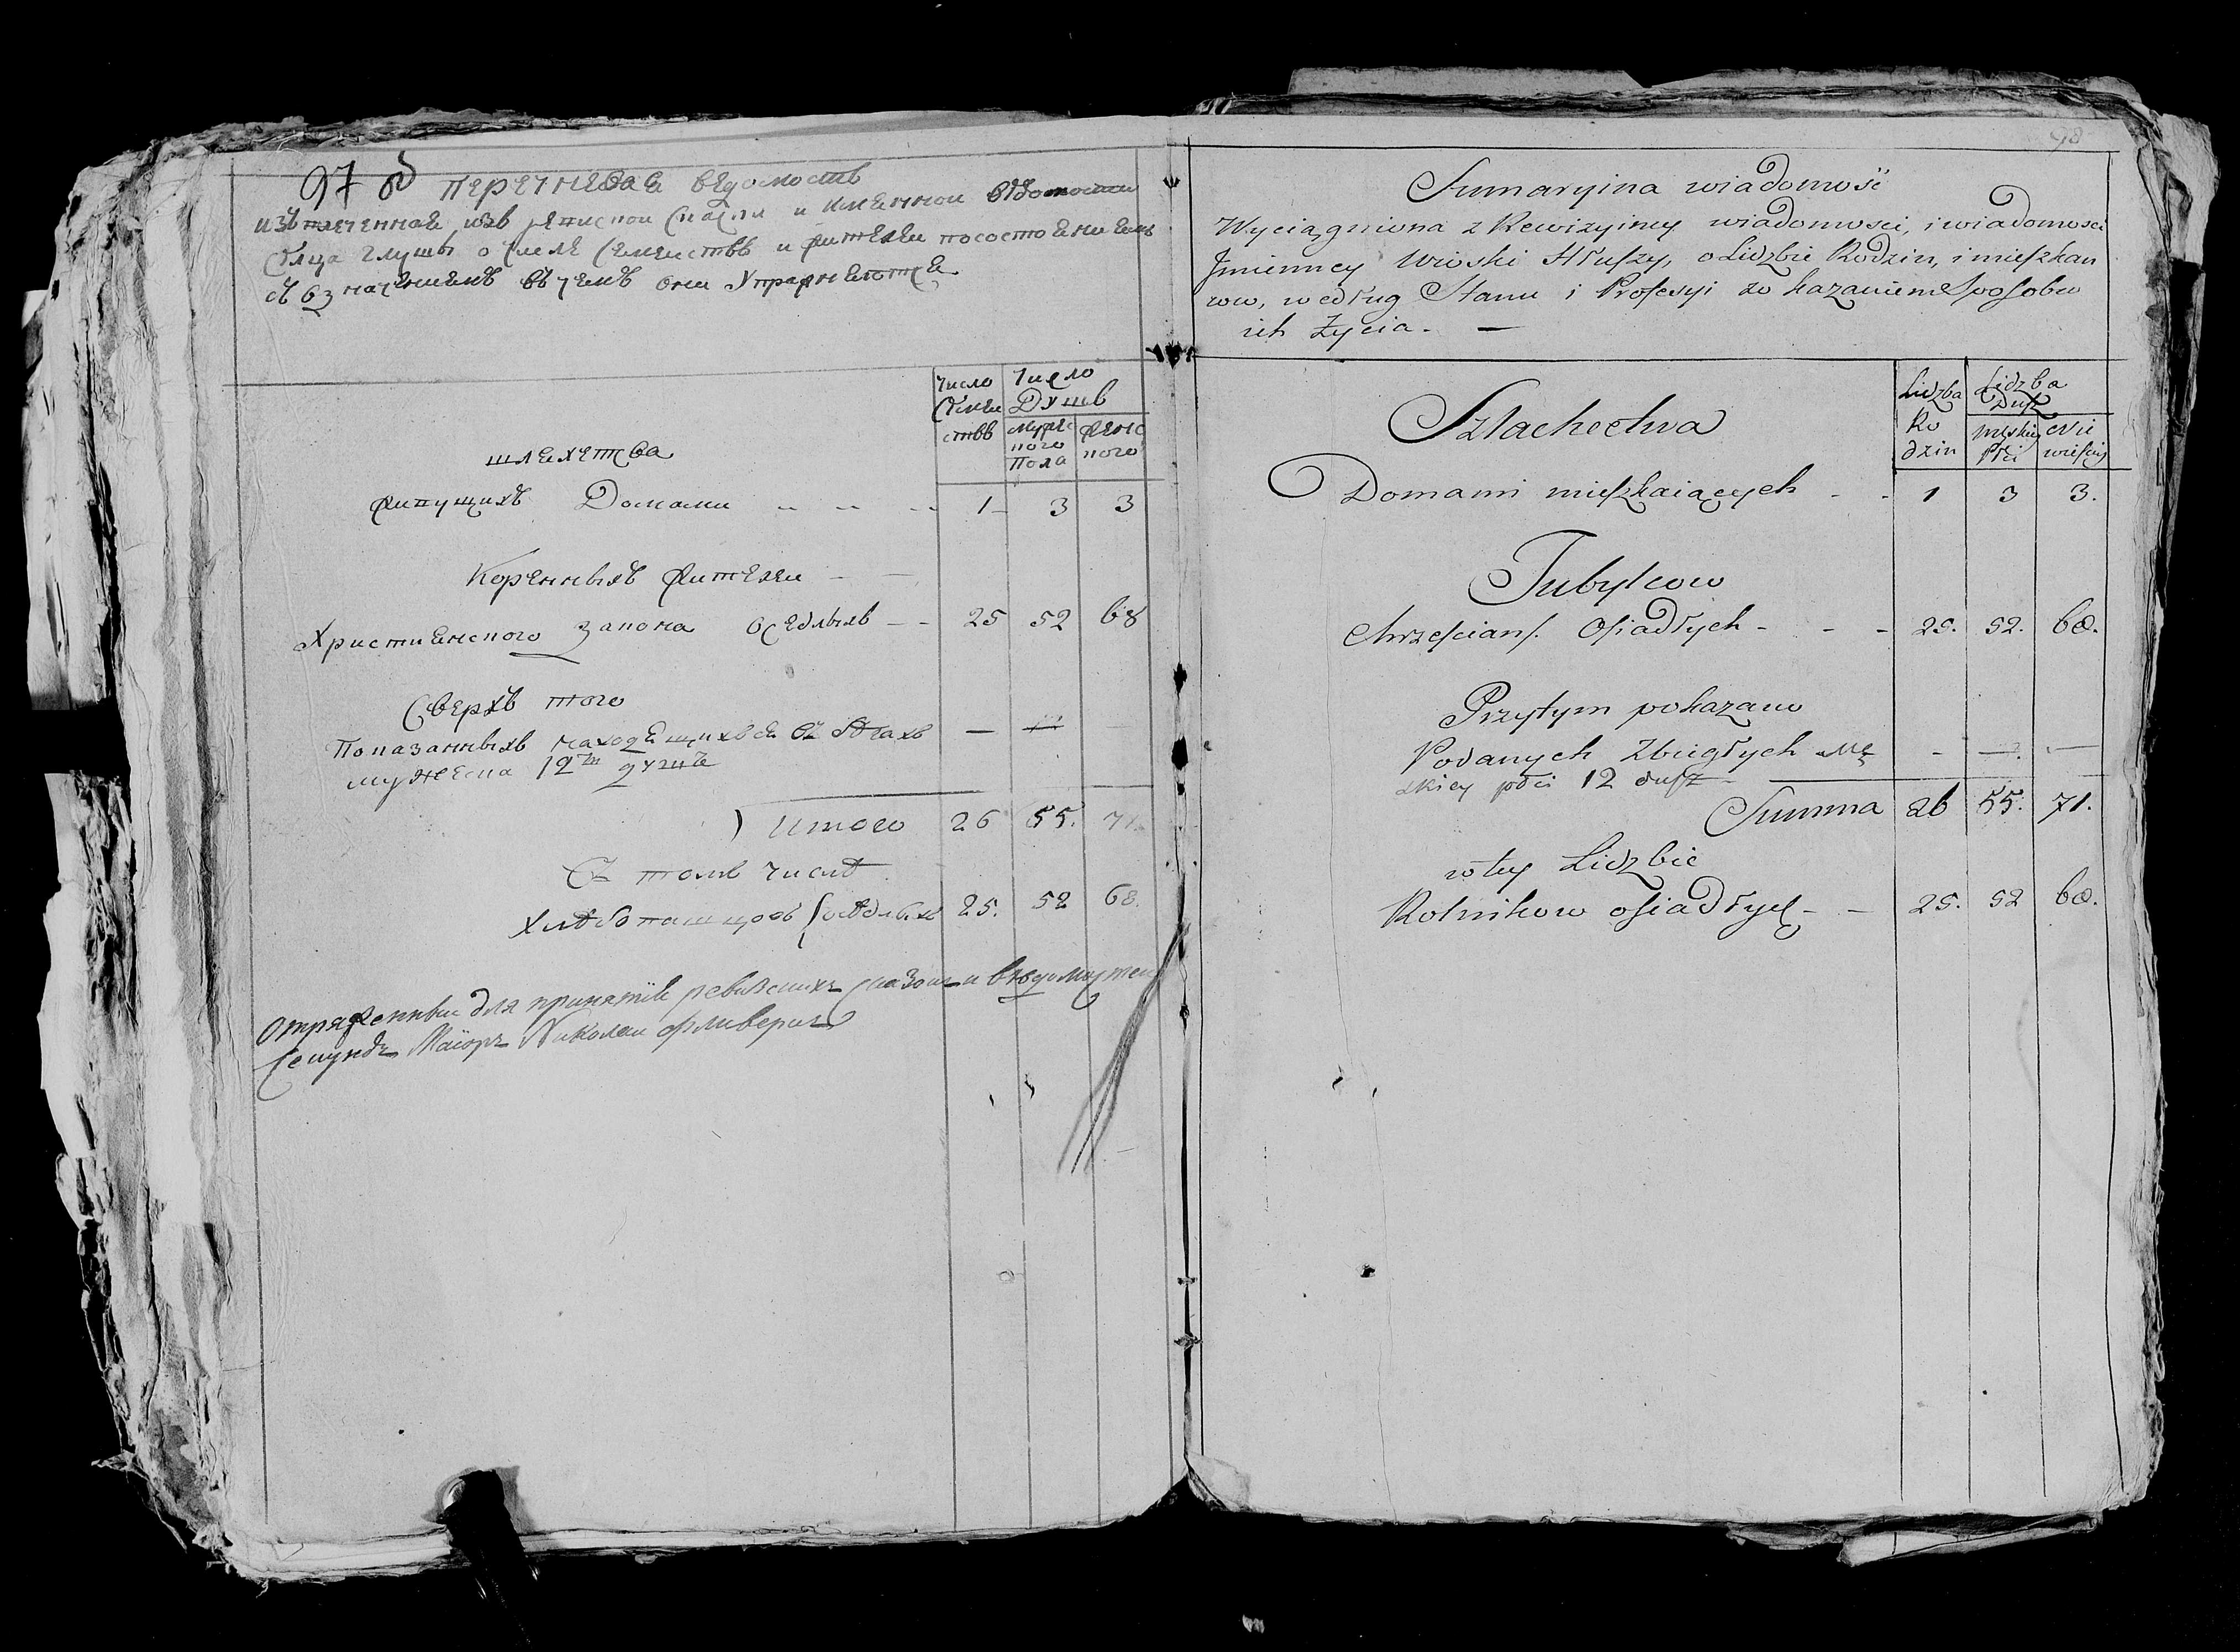 97 об
Перечневая ведомость
Извлеченная изъ ревиской скаски и именной вѣдомости
села Глушы о числе семействъ и жителеи посостоянию ихъ
съ означениемъ въ чемъ они упражнеются
Число Семеи ствъ
Число Душъ
мужес кого Пола
женс кого
шляхетства
живущихъ Домами 1 3 3
Коренныхъ жителеи
Християнского закона оседлыхъ 25 52 68
Сверхъ того
Показанныхъ находящихся въ бѣгахъ — —
мужеска 12 душъ
Итого 26 55. 71.
Въ томъ числѣ
Хлѣбопашцовъ осѣдлыхъ 25. 52 68.
Отряженныи для принятия ревизскихъ сказокъ и вѣдомостеи
Секундъ Маіоръ Николаи
98
Sumaryina wiadomość
Wyciągniona z Rewizyiney wiadomosci, i wiadomosci
Jmienney Wioski Hłuszy, o Lidzbie Rodzin, i mieszkan
cow, według Stanu i Profesyi zo kazaniem Sposobu
ich Zycia. —
Lidzba Ro dzin
Lidzba Dusz
męskiey Płci
Nie wieściey
Szlachectwa
Domami mieszkaiących - - 1 3 3.
Tubylcow
Chrześcians. Osiadłych - - - 25. 52. 68.
Przytym pokazano
Podanych Zbiegłych Mę - — —
skiey płci 12 dusz
Summa 26 55. 71.
w tey Lidzbie
Rolnikow osiadłych - — 25. 52 68.